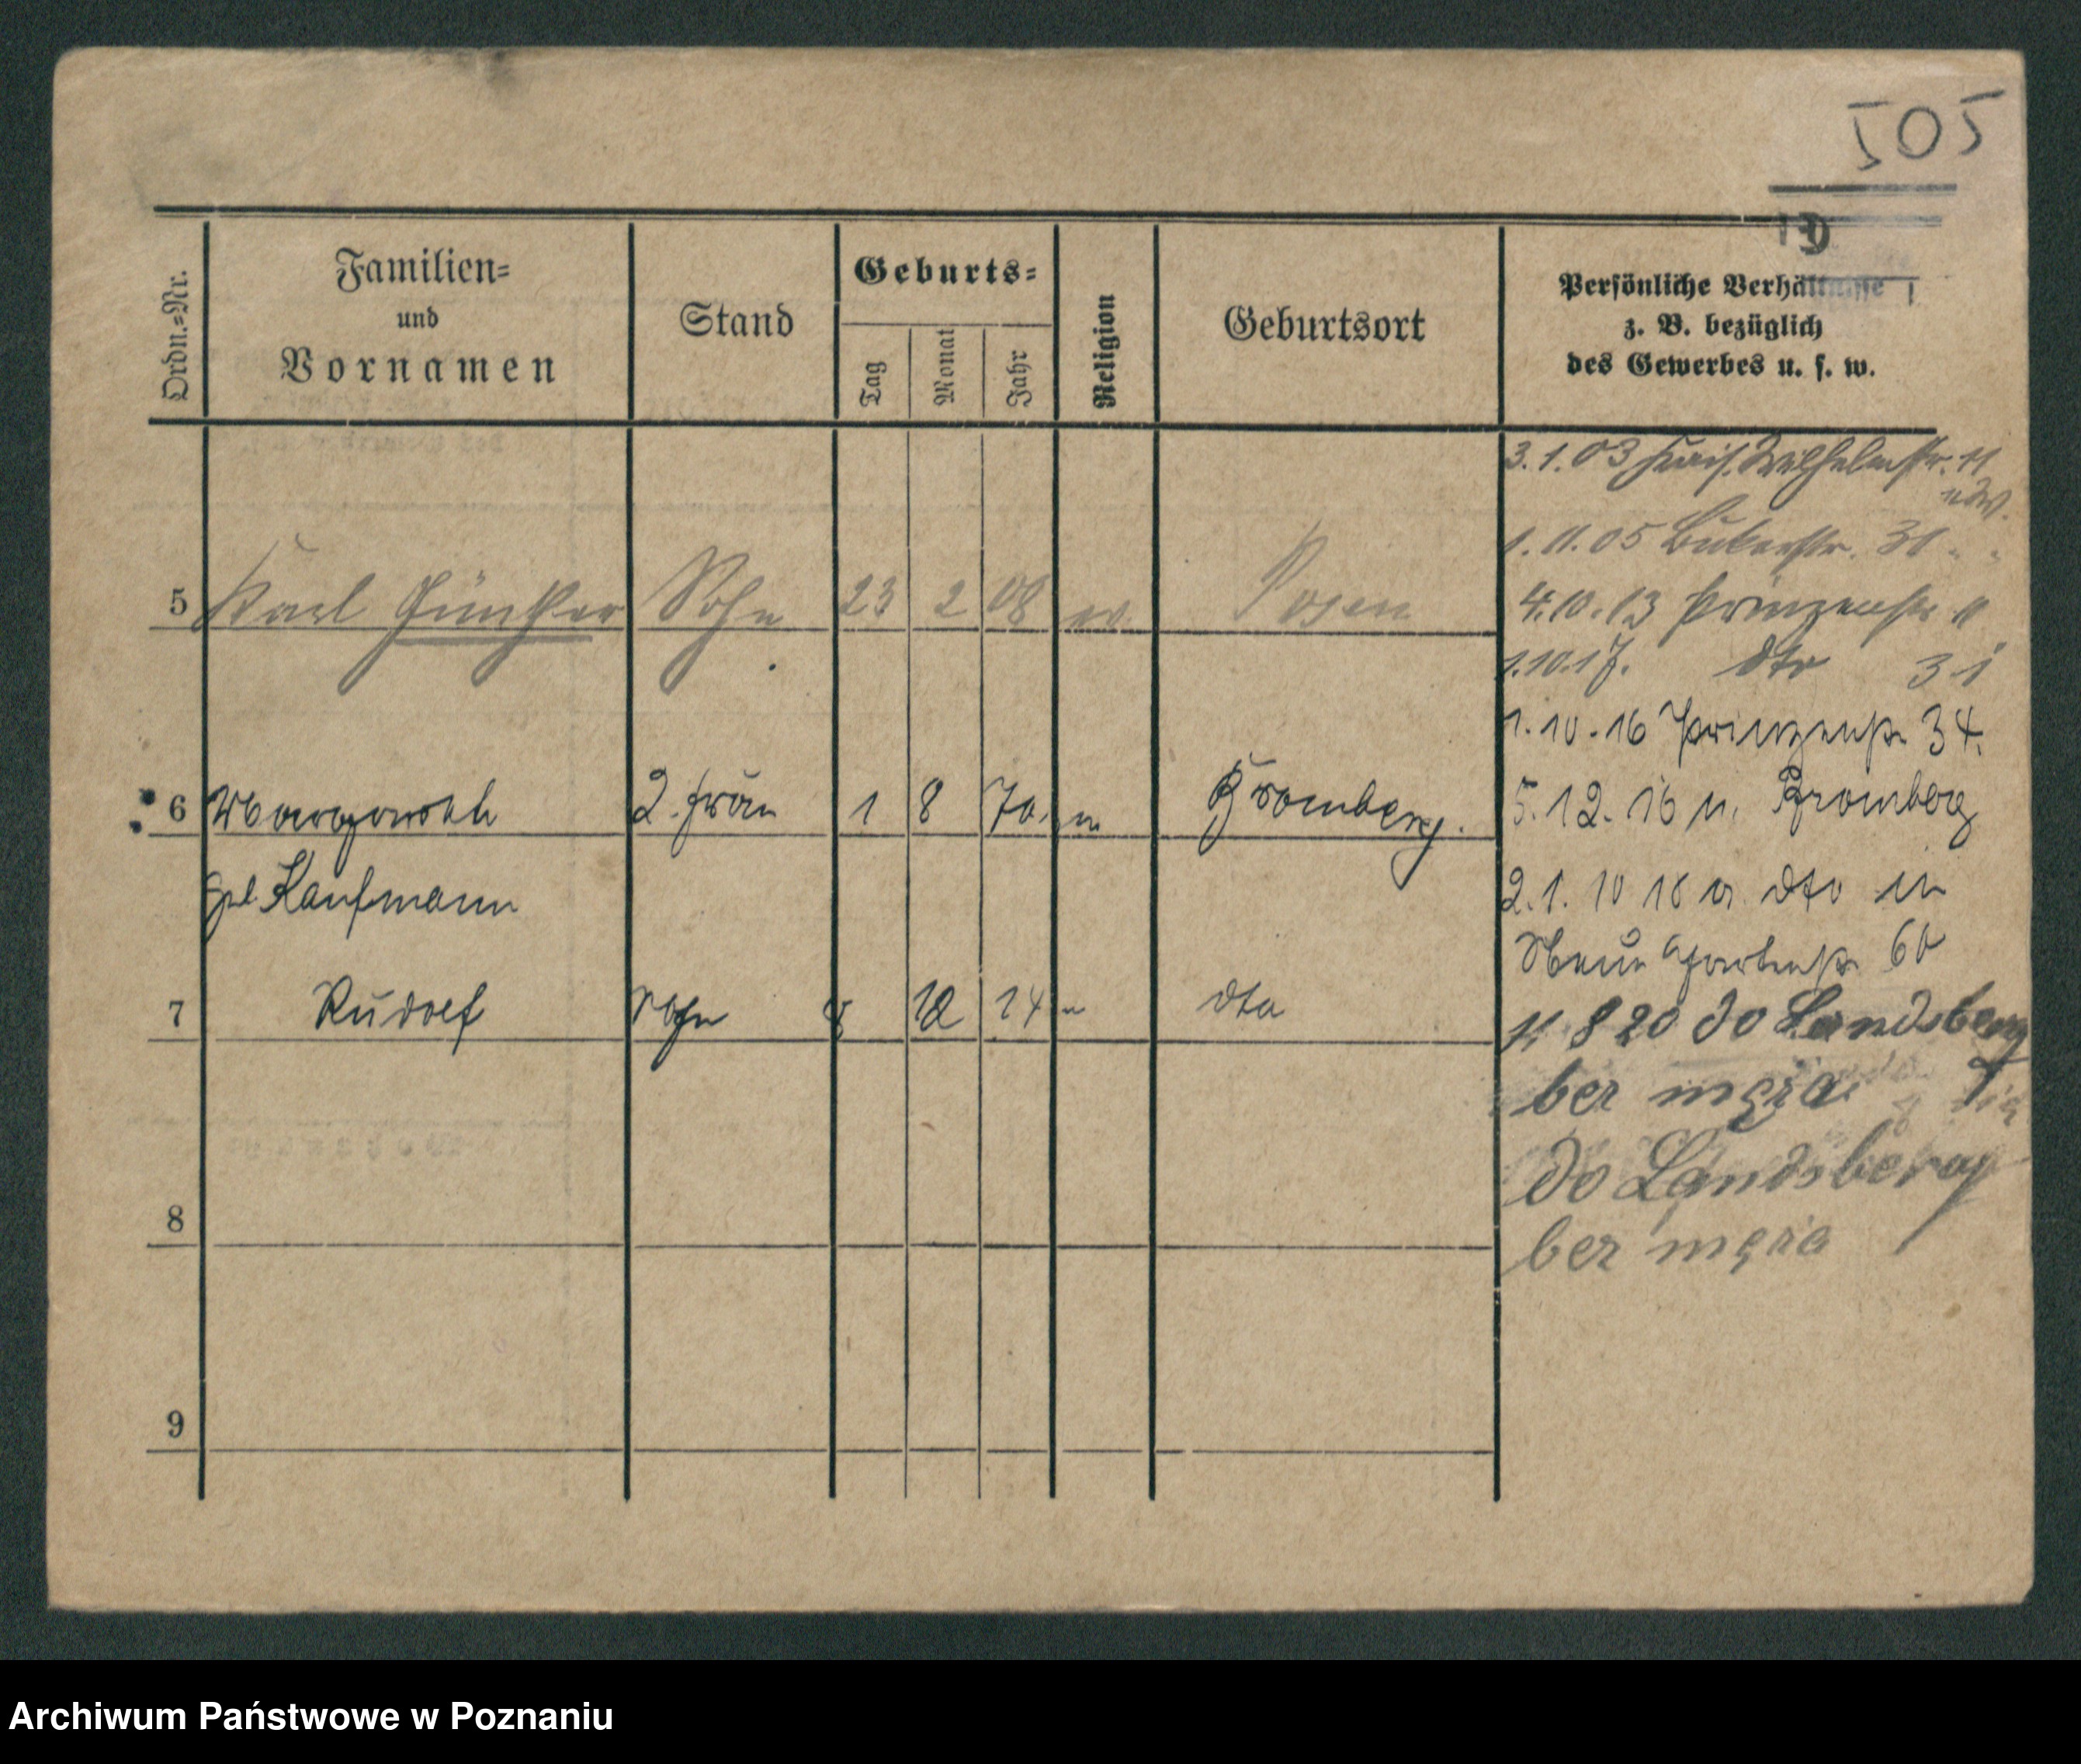 505
Ordn.-Nr.
Familien-
und
Vornamen
Stand
Geburts-
Tag
Monat
Jahr
Religion
Geburtsort
Persönliche Verhältnisse
z. B. bezüglich
des Gewerbes u. s. w.
3.1.03 Wilhelmstr. 11
1.11.05 Bukerstr. 31
5 Karl Günther Sohn 23 2 08 Posen
4.10.13 Prinzenstr.
1.10.17. dto 31
1.10.16 Prinzenstr 34.
6 2. Frau 1 8 70 Bromberg.
5.12.16 n. Bromberg
geb Kaufmann
2.1. 10 18 a dto in
Neue Gartenstr 60
7 Rudolf Sohn 8 12 14 " dto
820 do Landsberg
ber męża
do Landsberg
ber męża
8
9
Archiwum Państwowe w Poznaniu